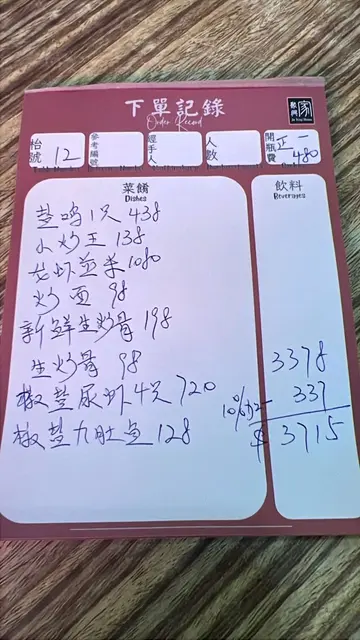 家
下單記錄
Order Record
枱號 12
參考編號
經手人
人數
開瓶費 正一 480
菜餚
Dishes
飲料
Beverages
1只 438
小炒王 138
龙虾 1080
炒面 98
新鮮生炒骨 198
生炒骨 98
椒盐尿虾4只 720
椒盐九肚鱼 128
3378
10%加一 337
$ 3715